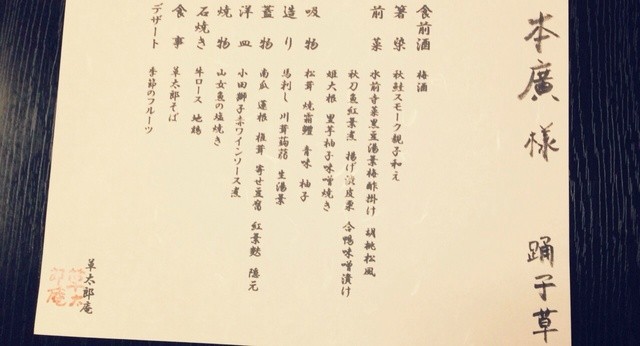 本廣様 踊子草
食前酒 梅酒
箸染 秋鮭スモーク親子和え
前菜 水前寺菜黒豆湯葉梅酢掛け 胡桃松風
秋刀魚紅葉煮 揚げ渋皮栗 合鴨味噌漬け
姫大根 里芋柚子味噌焼き
吸物 松茸 焼霜鱧 青味 柚子
造り 馬刺し 川茸蒟蒻 生湯葉
蓋物 南瓜 蓮根 椎茸 寄せ豆腐 紅葉麩 隠元
洋皿 小田獅子赤ワインソース煮
焼物 山女魚の塩焼き
石焼き 牛ロース 地鶏
食事 草太郎そば
デザート 季節のフルーツ
草太郎庵